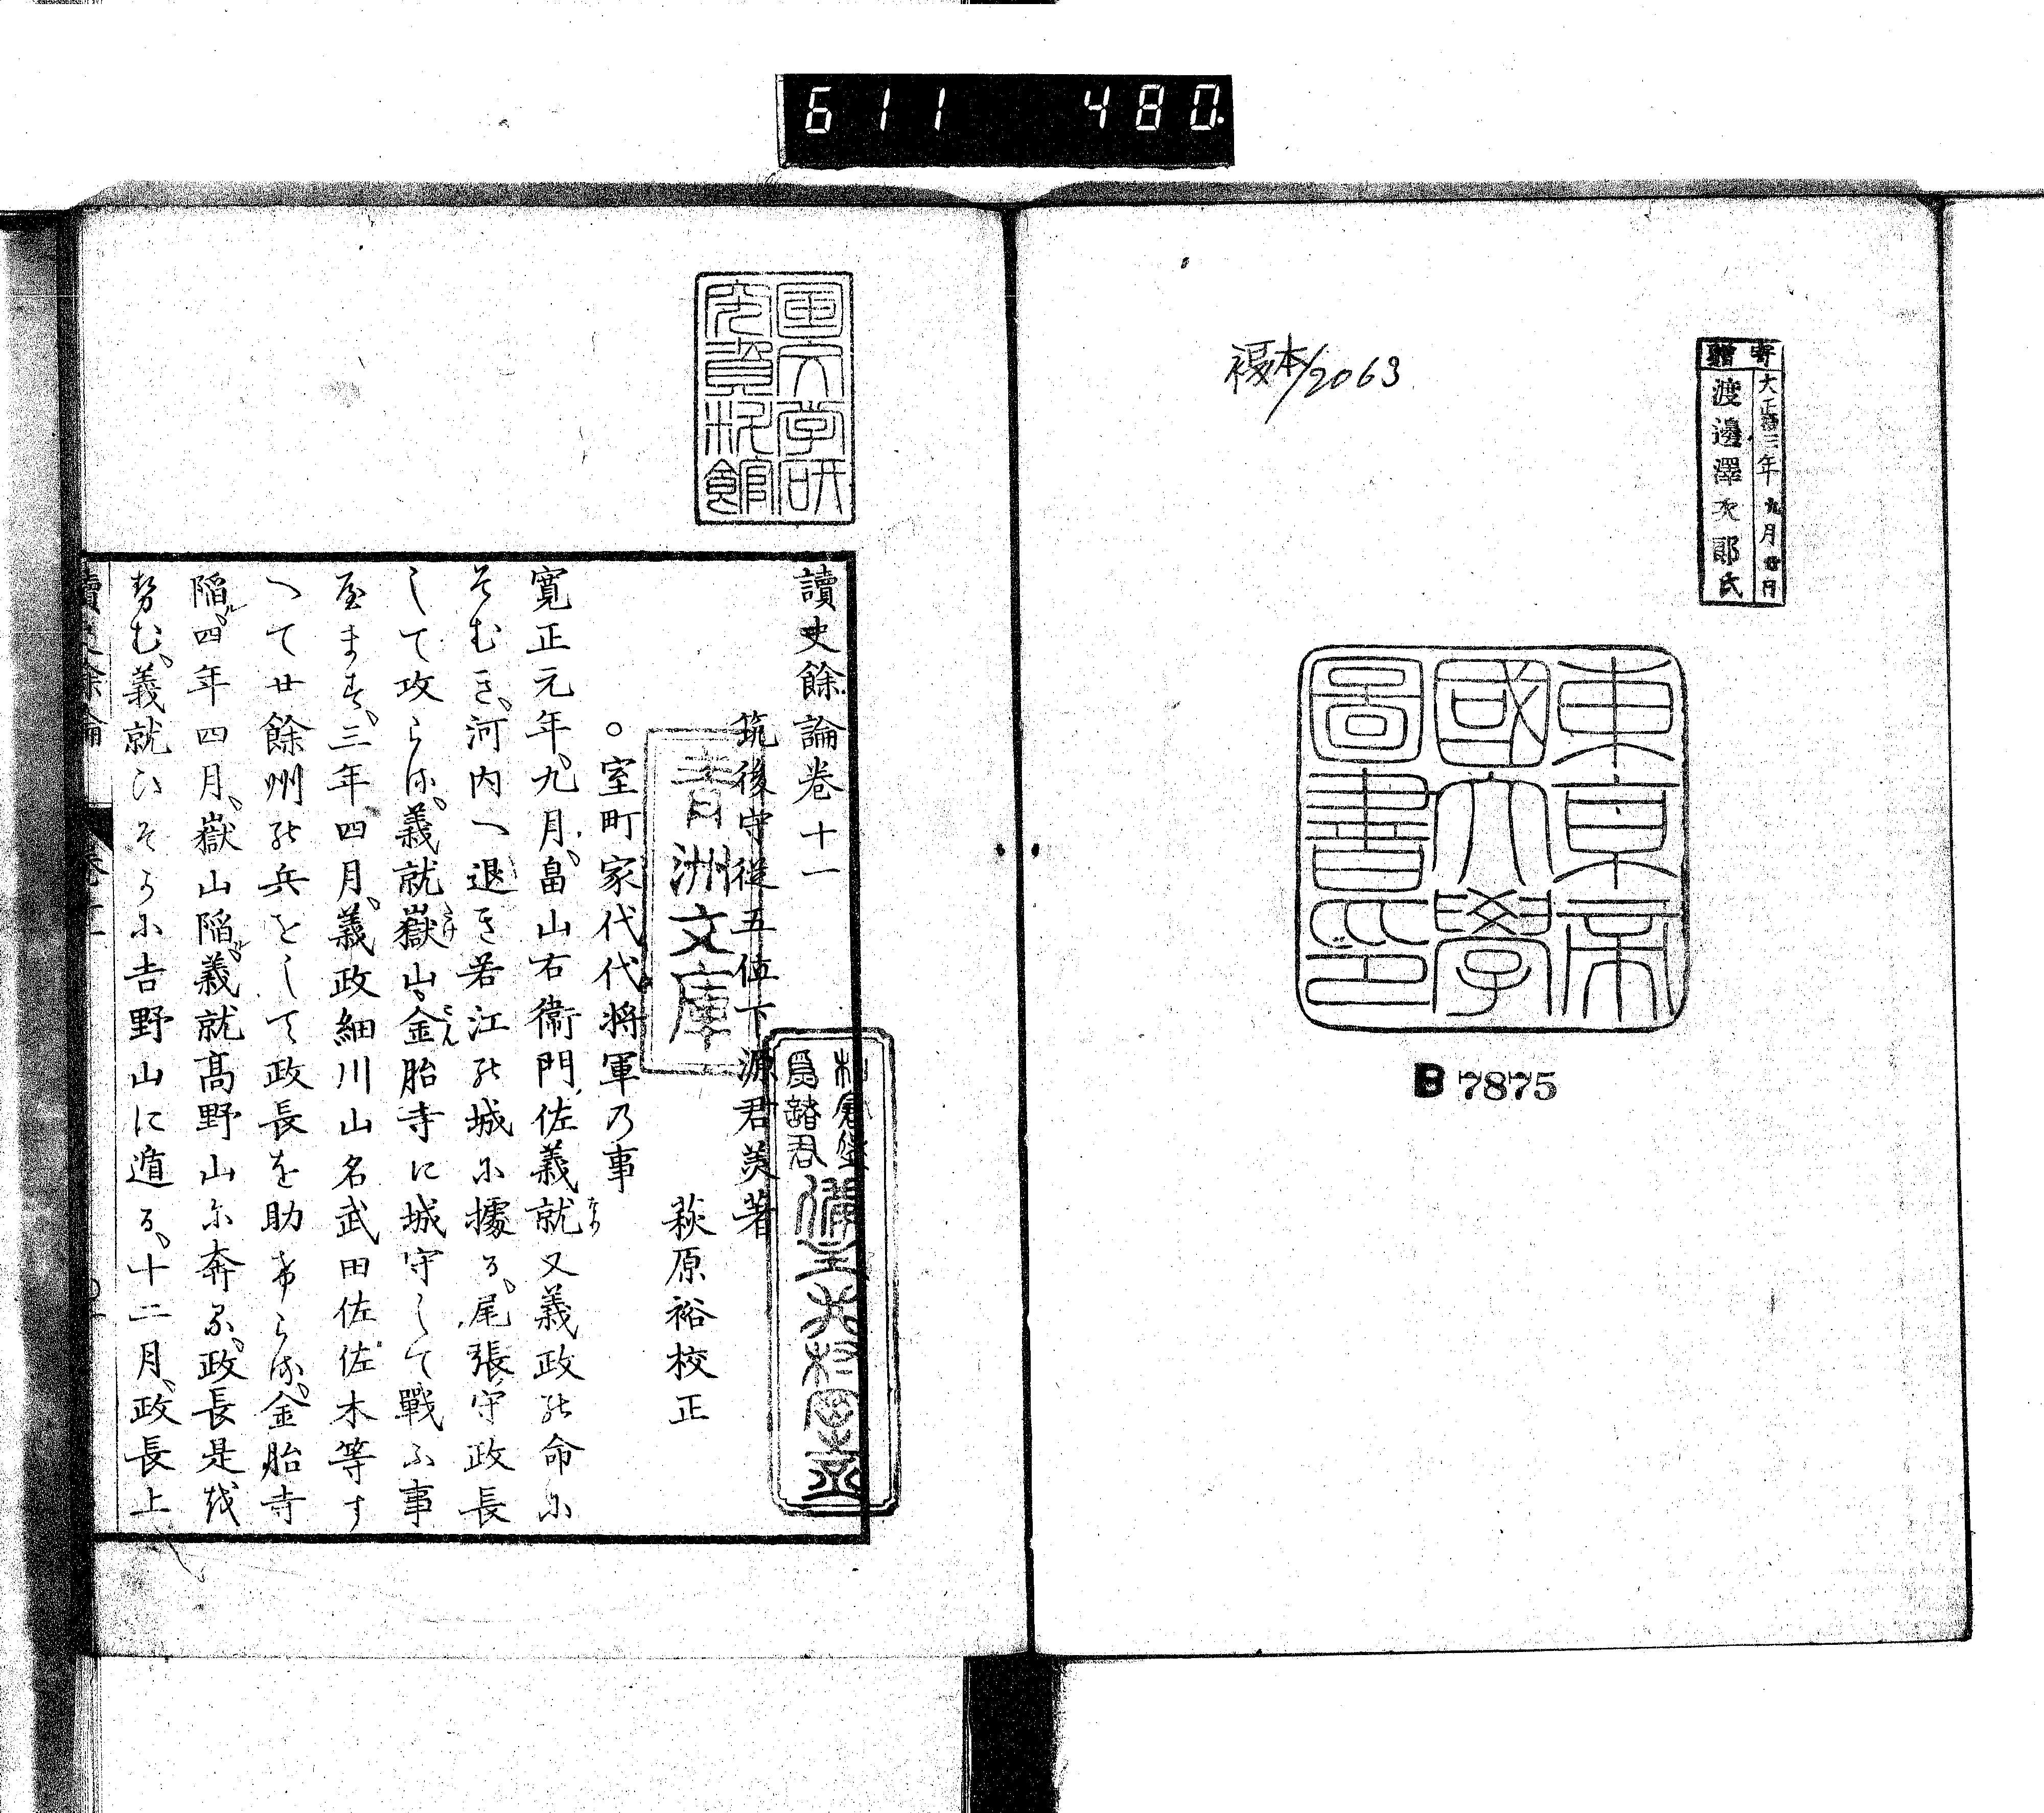 611 480
寄贈
大正十三年九月廿日
渡邊澤次郎氏
複本/2063
東京帝
國大學
圖書印
B 7875
国文学研
究資料館
讀史餘論卷十一
筑後守從五位下源君美著
萩原裕校正
青洲文庫
○室町家代代將軍乃事
寛正元年、九月、畠山右衞門佐義就又義政の命に
そむき、河内へ退き若江の城に據る、尾張守政長
して攻らる、義就嶽山、金胎寺に城守して戰ふ事
屋まず、三年四月、義政細川山名武田佐佐木等す
べて廿餘州の兵をして政長を助けらる、金胎寺
陥、四年四月、嶽山陥、義就高野山に奔る、政長是を
勢む、義就ひそかに吉野山に遁る、十二月、政長上
讀史餘論